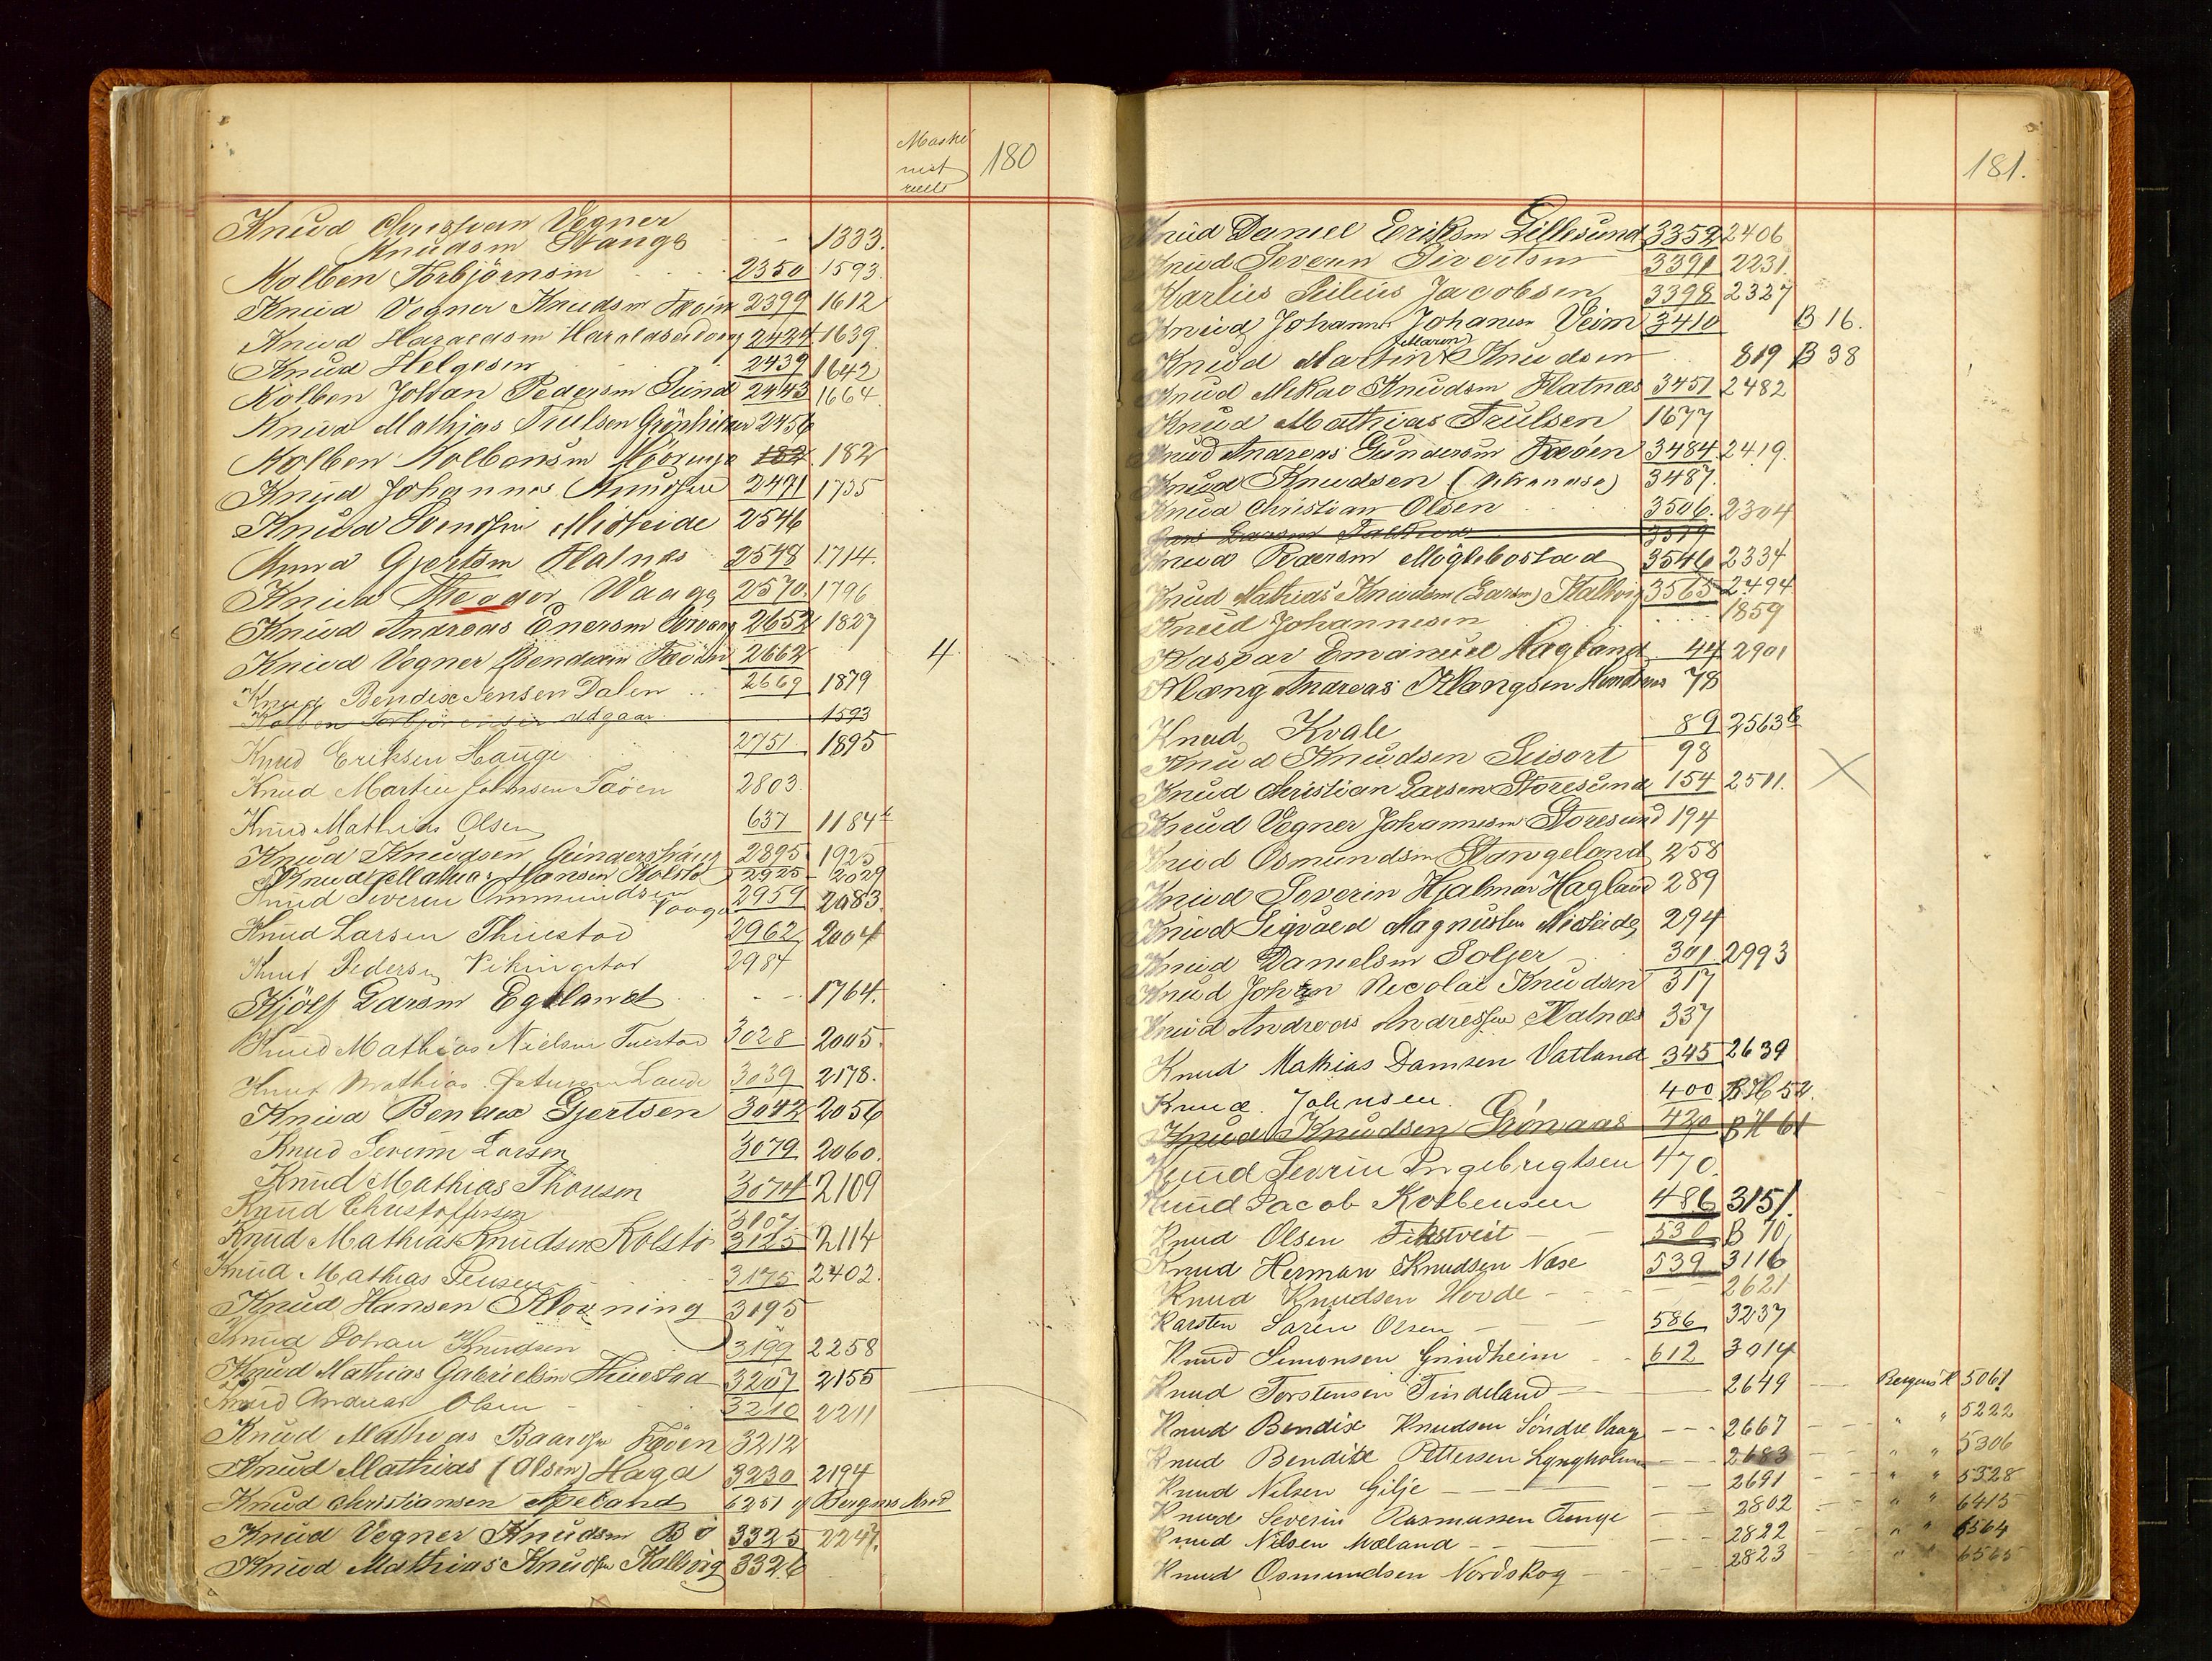 Maski
nist
rulle
180
Knud Christian Vegner
Knudsen Hauge - - 1333.
Kolben Torbjörnsen 2350 1593.
Knud Vegner Knudsen Faöen 2399 1612
Knud Haraldsen Haraldseidvaag 2424 1639
Knud Helgesen 2439 1642
Kolben Johan Pedersen Sund 2443 1664
Knud Mathias Truelsen 2456
Kolben Kolbensen 182 182
Knud Johannes Knudsen 2471 1735
Knud Svendsen Misteide 2546
Knud Gjertsen Halnes 2548 1714.
Knud Waage 2570. 1796
Knud Andreas Enersen 2652 1827
Knud Vegner Bendixen Faöen 2662 4
Knud Bendix Jensen Dalen 2669 1879
Kolben Torbjörnsen Udgaar 1593
Knud Eriksen Hauge 2751 1895
Knud Martin Johnsen Faöen 2803.
Knud Mathias Olsen 637 1184
Knud Knudsen Gundershaug 2895 1925
Knud Mathias Hansen Kolstö 2925 2029
Knud Severin Ommundsen Vaage 2959 2083.
Knud Larsen Thuestad 2962 2004
Knut Pedersen Vikingstad 2984
Kjölf Larsen Egeland - - 1764.
Knud Mathias Nielsen Tuestad 3028 2005.
Knut Mathias 3039 2178.
Knud Bendix Gjertsen 3042 2056
Knud Severin Larsen 3079 2060.
Knud Mathias Thorsen 3074 2109
Knud Christoffersen 3107
Knud Mathias Knudsen Kolstö 3125 2114
Knud Mathias Jensen 3175 2402.
Knud Hansen Klovning 3195
Knud Johan Knudsen 3199 2258
Knud Mathias Gabrielsen Thuestad 3207 2155
Knud Andreas Olsen 3210 2211
Knud Mathias Baardsen Faöen 3212
Knud Mathias (Olsen) Haga 3230 2194
Knud Christiansen Apeland 6251 Bergens
Knud Vegner Knudsen Bö 3325 2247.
Knud Mathias Knudsen Kallvig 3326
181.
Knud Daniel Eriksen Lillesund 3352 2406
Knud Severin Sivertsen 3391 2231.
Karlius Julius Jacobsen 3398 2327
Knud Johannes Johansen Veim 3410 B 16.
Knud Martin (Maren) Knudsen 819 B 38
Knud Mikal Knudsen Halnæs 3451 2482
Knud Mathias Trulsen 1677
Knud Andreas Gundersen Faöen 3484 2419.
Knud Knudsen 3487.
Knud Christian Olsen 3506. 2304
Lars Larsen 3519
Knud Möglebostad 3546 2334
Knud Mathias Knudsen (Larsen) Kallvig 3565 2494
Knud Johannesen 1859
Kaspar Emanuel Hagland 44 2901
Klæng Andreas Klængsen 78
Knud Kvale 89 2563b
Knud Knudsen 98
Knud Christian Larsen Storesund 154 2511.
Knud Vegner Johannesen Storesund 194
Knud Osmundsen Stangeland 258
Knud Severin Hjalmar Hagland 289
Knud Sigvald Magnussen Misteide 294
Knud Danielsen Solger 301. 2993
Knud Johan Nicolai Knudsen 317
Knud Andreas Andreassen Halnæs 337
Knud Mathias Damsen Vatland 345 2639
Knud Johnsen. 400 B.H 52.
Knud Knudsen Grönaas 420 B H 61
Knud Sevrin Ingebrigtsen 470.
Knud Jacob Kolbensen 486 3151.
Knud Olsen Fikstveit 530 B 70
Knud Herman Knudsen Næse 539 3116
Knud Knudsen Hovde - - 2621
Karsten Søren Olsen 586 3237
Knud Simonsen Grindheim 612 3014
Knud Torstensen Tindeland 2649 Bergens H 5061
Knud Bendix Knudsen Søndre Vaage 2667 " " 5222
Knud Bendix Pettersen Lyngholmen 2683 " " 5306
Knud Nilsen Gilje 2691 " " 5328
Knud Severin Rasmussen Tunge 2802 " " 6415
Knud Nilsen Mæland 2822 " " 6564
Knud Osmundsen Nordskog 2823 " " 6565